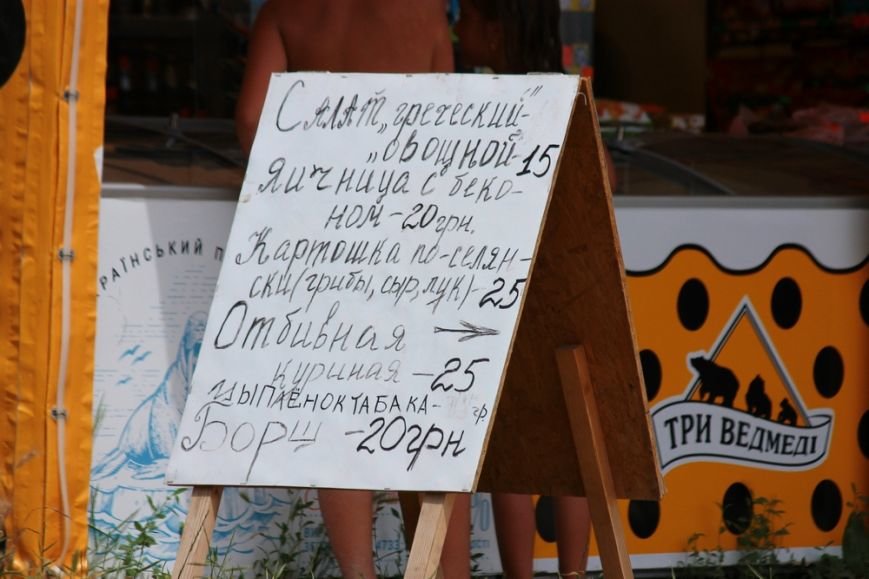 Салат „греческий“-
„овощной“- 15
Яичница с беко-
ном - 20 грн.
Картошка по-селян-
ски (грибы, сыр, лук) - 25
Отбивная
куриная - 25
Цыпленок табака - гр.
Борщ - 20 грн
РАЇНСЬКИЙ П
ТРИ ВЕДМЕДІ